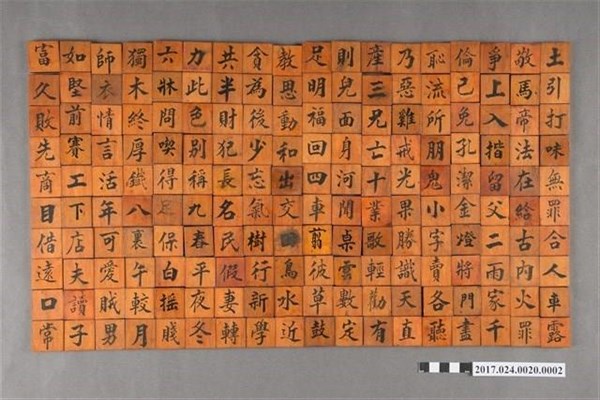 富如師獨六力共貪教足則產乃恥倫爭敬土
久堅衣木牀此半為思明兒三惡流己上馬引
敗前情終問色財後動福面兄難所免入帝打
先賽言厚喫別犯少和回身亡戒朋孔揩法味
商工活鐵得稱長忘出四河十光鬼潔留在無
目下年八足九名氣交車聞業果小金父給罪
借店可裏保春民樹田翦桌歌勝字燈二古合
遠夫愛午白平假行鳥彼雲輕識賣將雨內人
口讀賊較搖夜妻新水草數勸天各門家火車
常子男月賤冬轉學近鼓定有直聽盡千罪露
2017.024.0020.0002